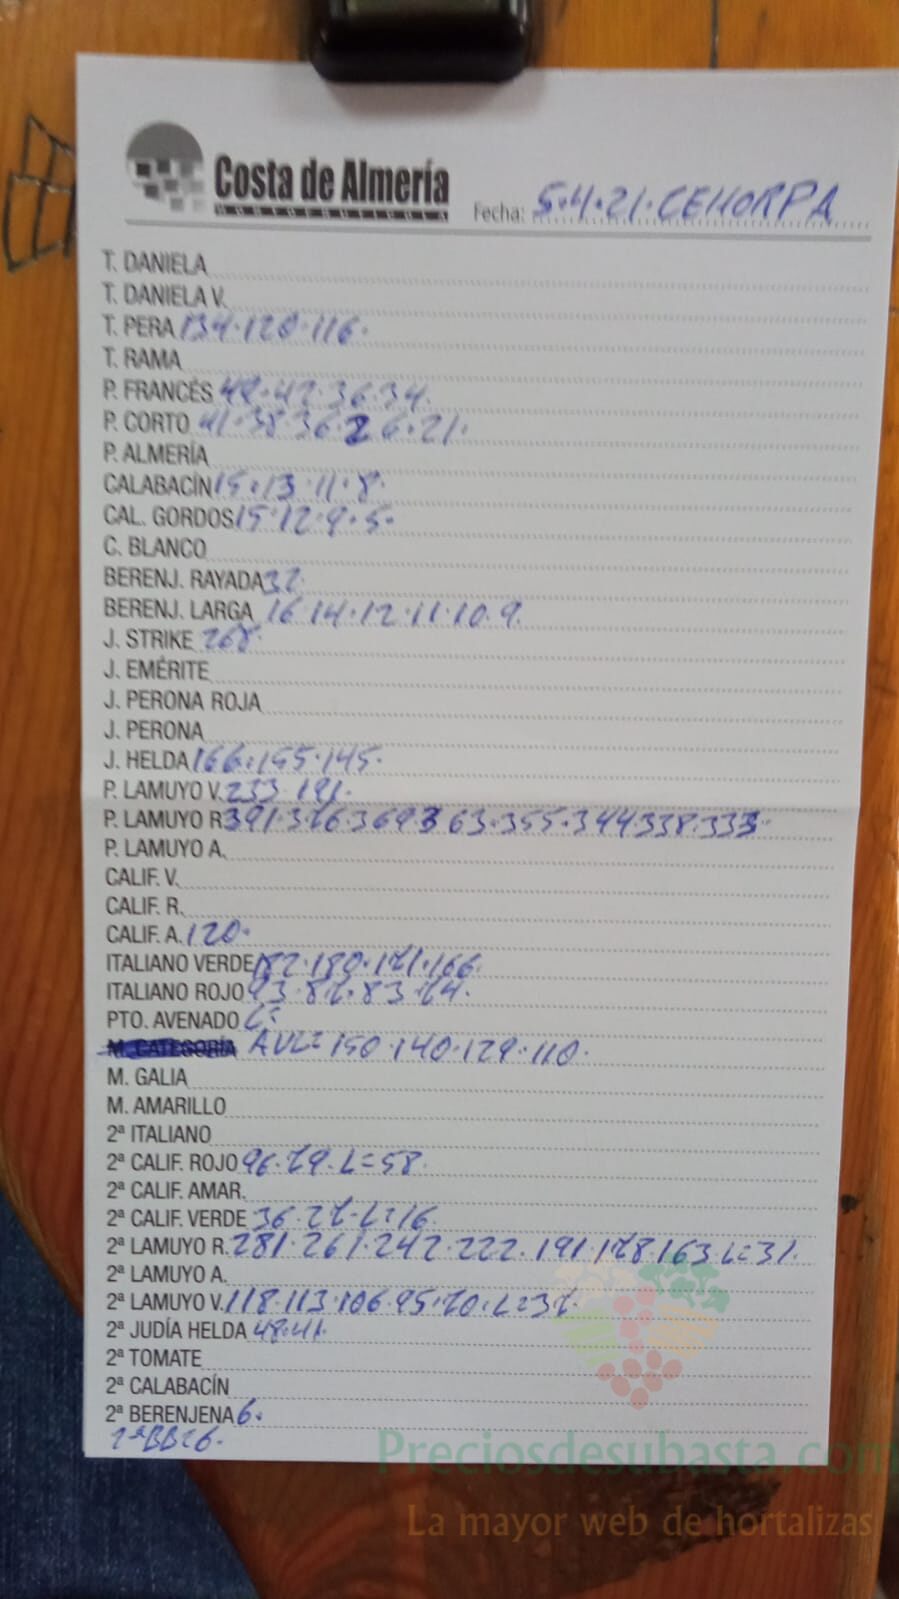 Costa de Almería
Fecha: 5.4.21. CEHORPA
T. DANIELA
T. DANIELA V.
T. PERA 134.120.116.
T. RAMA
P. FRANCÉS 48.42.36.34.
P. CORTO 41.38.36.26.21.
P. ALMERÍA
CALABACÍN 15.13.11.8.
CAL. GORDOS 15.12.9.5.
C. BLANCO
BERENJ. RAYADA 32
BERENJ. LARGA 16.14.12.11.10.9.
J. STRIKE 268.
J. EMÉRITE
J. PERONA ROJA
J. PERONA
J. HELDA 166.155.145.
P. LAMUYO V. 233.191.
P. LAMUYO R 391.376.369.363.355.344.338.333.
P. LAMUYO A.
CALIF. V.
CALIF. R.
CALIF. A. 120.
ITALIANO VERDE 187.180.171.166.
ITALIANO ROJO 93.87.83.74.
PTO. AVENADO
M. CATEGORÍA 150.140.129.110.
M. GALIA
M. AMARILLO
2ª ITALIANO
2ª CALIF. ROJO 96.79.L=58.
2ª CALIF. AMAR.
2ª CALIF. VERDE 36.27.L=16.
2ª LAMUYO R. 281.261.242.222.191.178.163.L=31.
2ª LAMUYO A.
2ª LAMUYO V. 118.113.106.95.70.L=37.
2ª JUDÍA HELDA 48.41.
2ª TOMATE
2ª CALABACÍN
2ª BERENJENA 6.
Preciosdesubasta.com
La mayor web de hortalizas